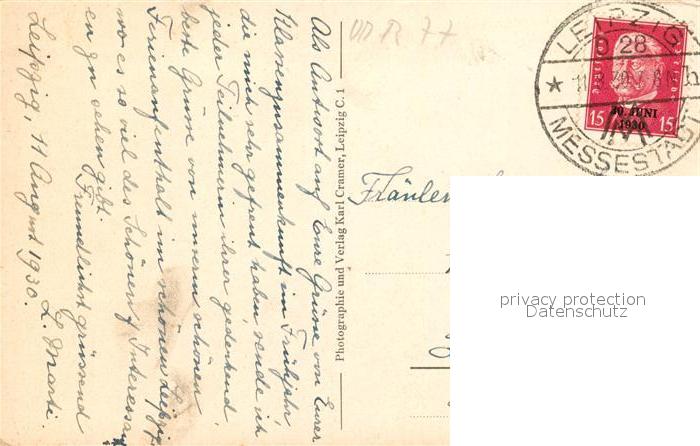 Als Antwort auf Eure Grüsse von Eurer
Klassenzusammenkunft im Frühjahr,
die mich sehr gefreut haben, sende ich
jeder Teilnehmerin ihrer gedenkend,
beste Grüsse von meinem schönen
Ferienaufenthalt im schönen Leipzig,
wo es so viel des Schönen u. Interessan
en zu sehen gibt.
Freundlichst grüssend
L. Marti.
Leipzig, 11 August 1930.
Photographie und Verlag Karl Cramer, Leipzig C. 1
LEIPZIG
28
MESSESTADT
30. JUNI
1930
15 15
Fräulein
privacy protection
Datenschutz